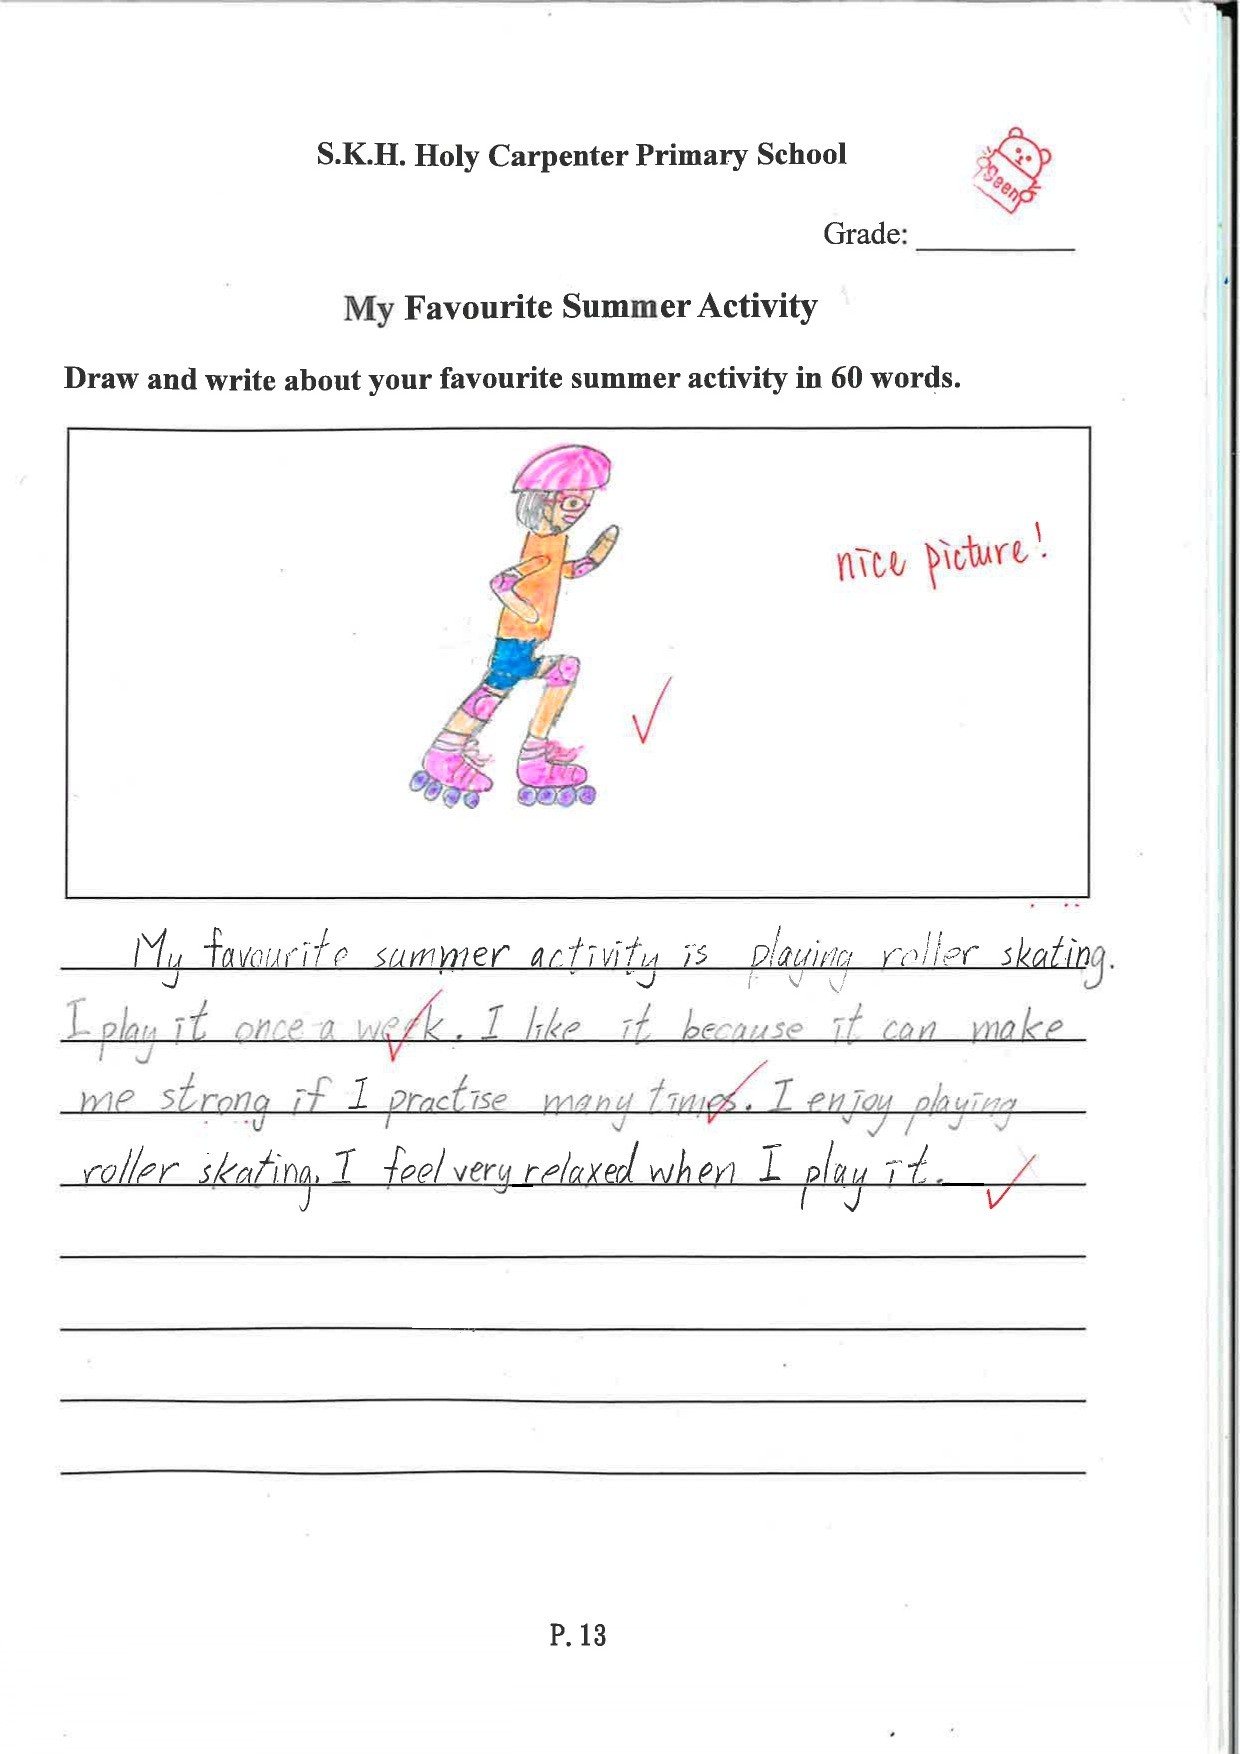 S.K.H. Holy Carpenter Primary School
Seen
Grade:
My Favourite Summer Activity
Draw and write about your favourite summer activity in 60 words.
nice picture!
My favourite summer activity is playing roller skating.
I play it once a week. I like it because it can make
me strong if I practise many times. I enjoy playing
roller skating. I feel very relaxed when I play it.
P. 13